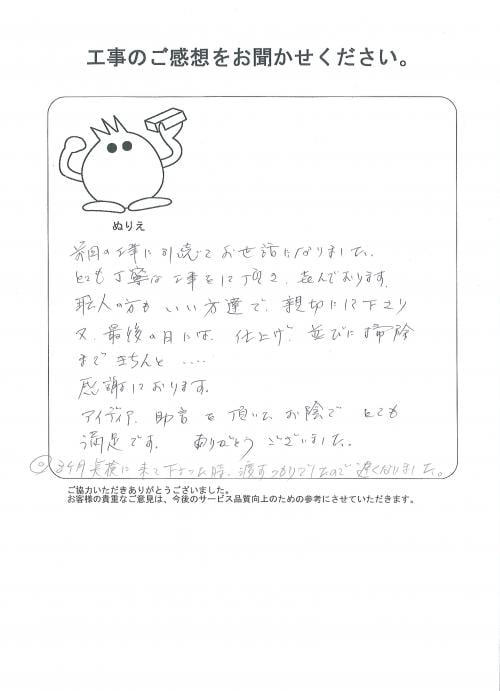 工事のご感想をお聞かせください。
ぬりえ
前回の工事に引続いてお世話になりました。
とても丁寧な工事をして頂き、喜んでおります。
職人の方も いい方達で、親切にして下さり
又、最後の日には、仕上げ、並びに掃除
まで きちんと ‥‥
感謝しております。
アイディア、助言を頂いて、お陰で とても
満足です。 ありがとう ございました。
◎ 3ヶ月点検に来て下さった時、渡すつもりでしたので遅くなりました。
ご協力いただきありがとうございました。
お客様の貴重なご意見は、今後のサービス品質向上のための参考にさせていただきます。